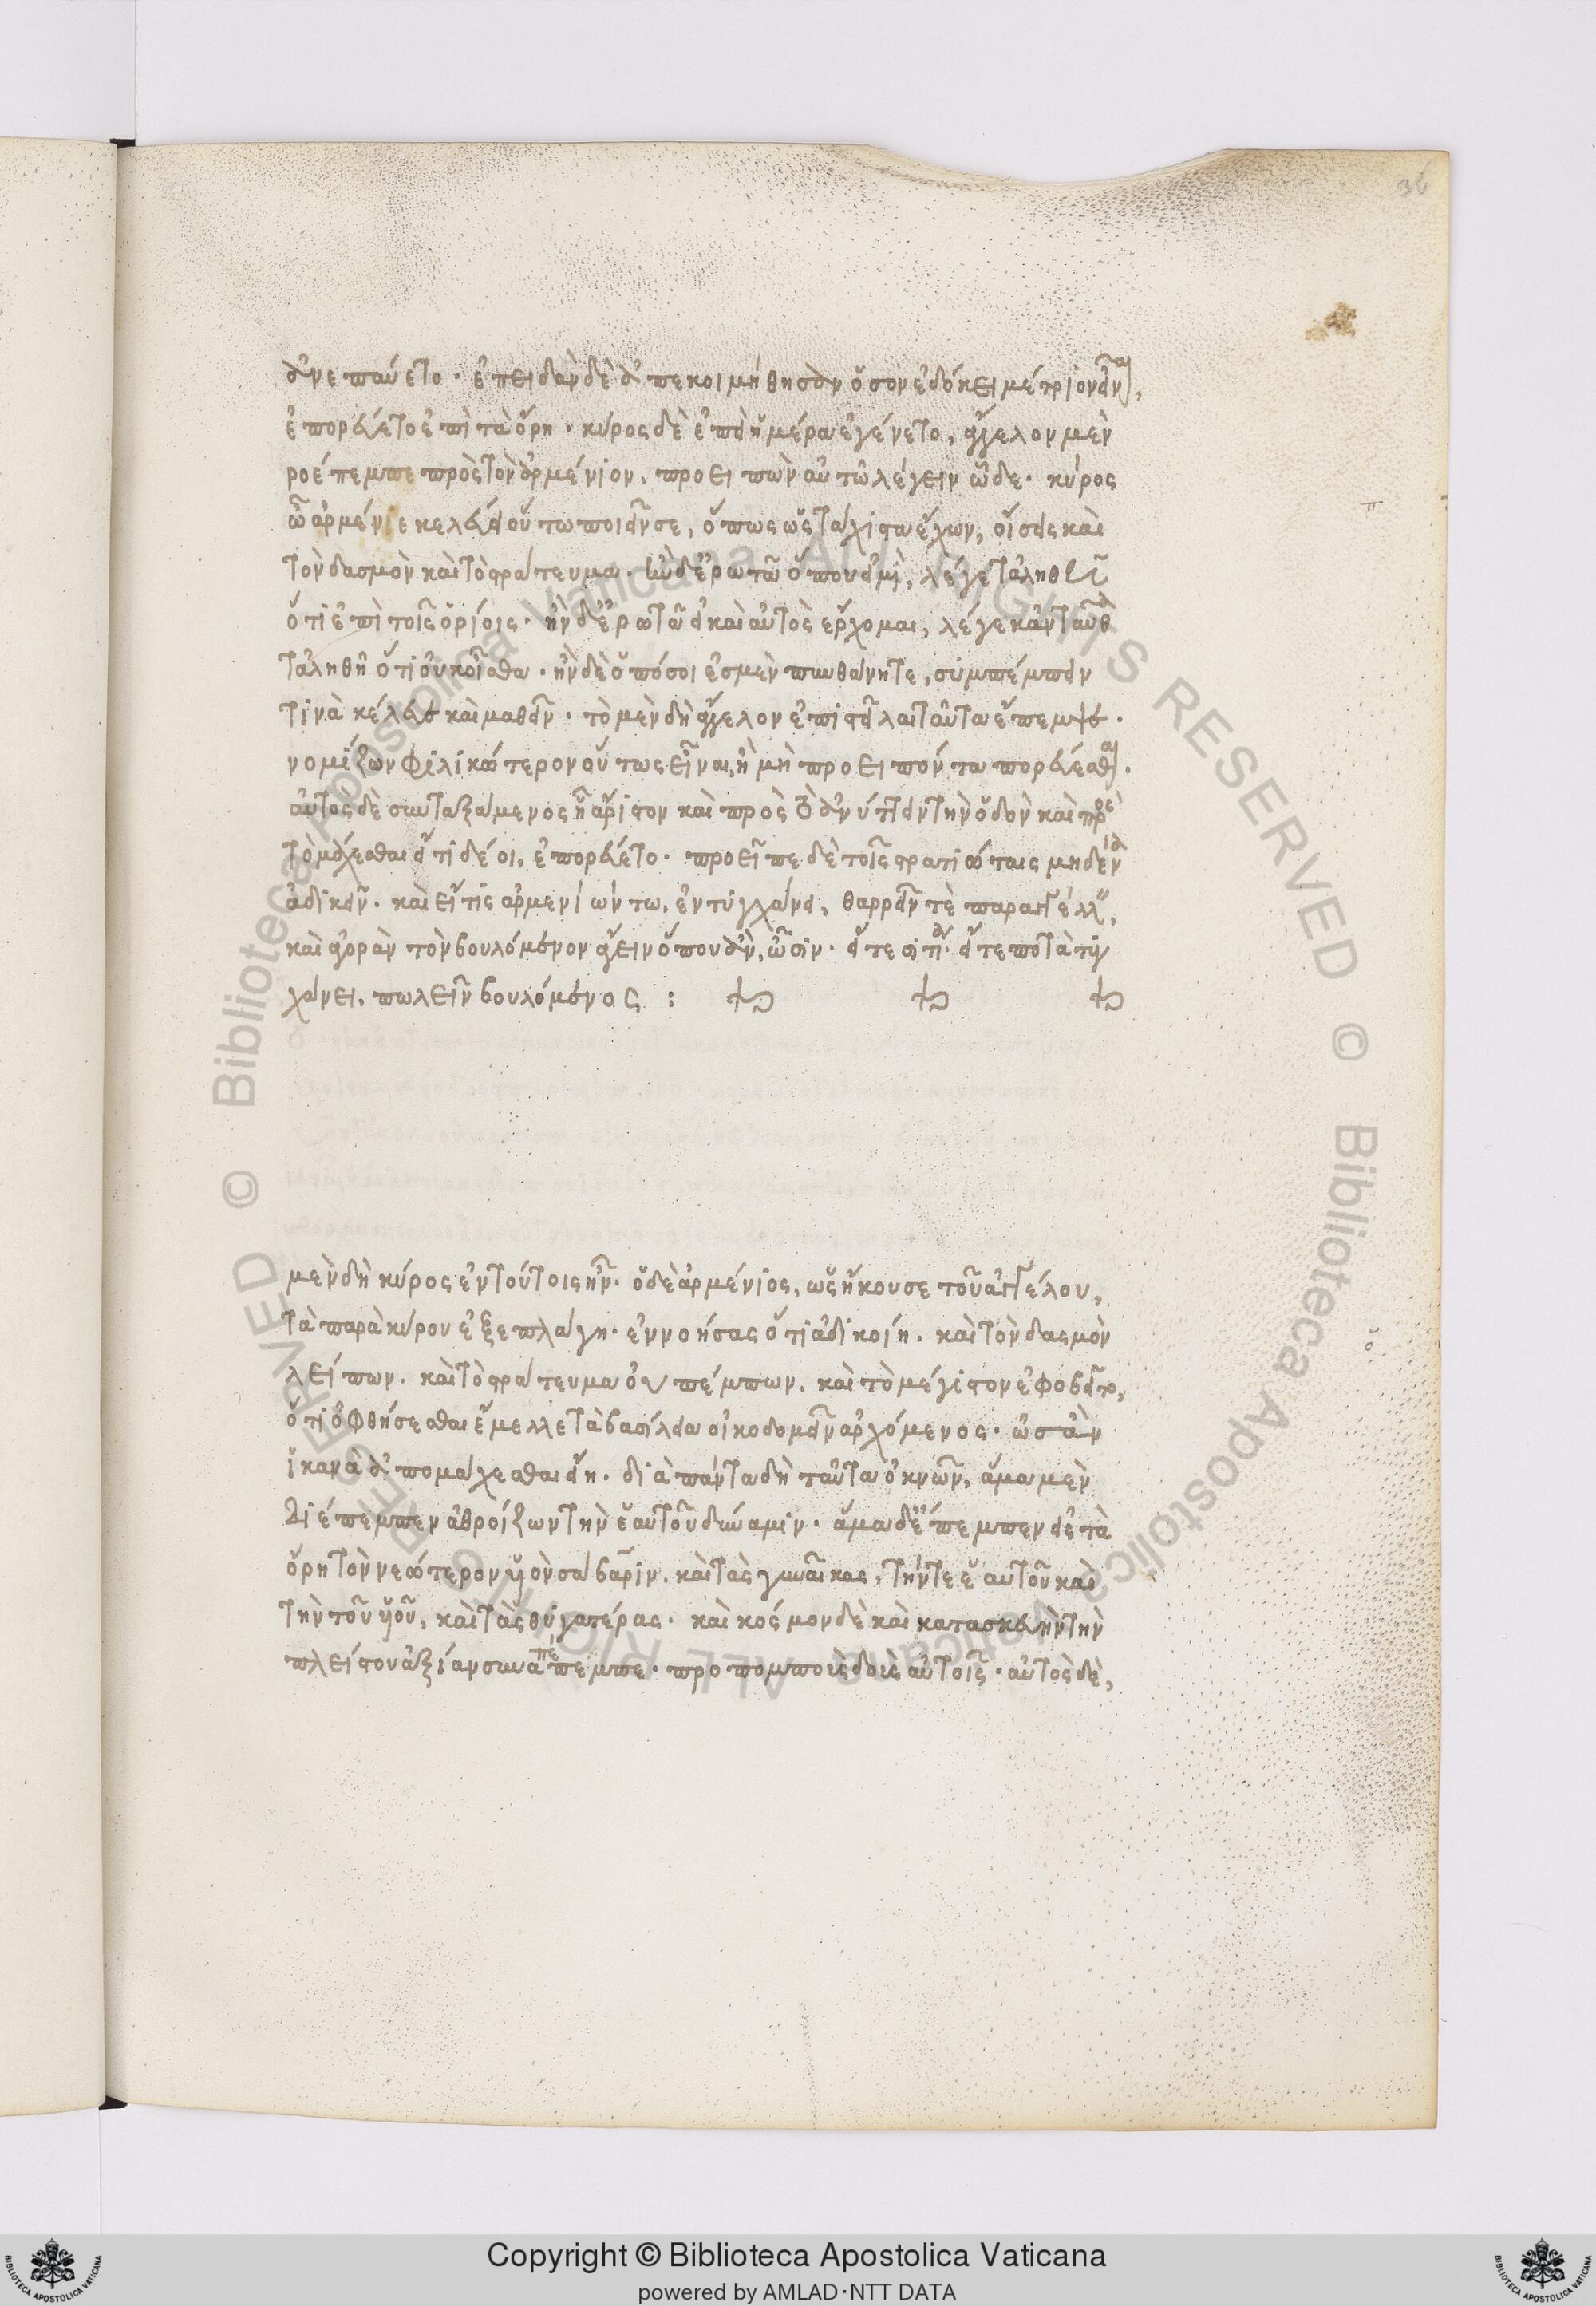 36
ἀνεπαύετο. ἐπειδὰν δὲ ἀπεκοιμήθησαν ὅσον ἐδόκει μέτριον εἶναι,
ἐπορεύετο ἐπὶ τὰ ὄρη. κύρος δὲ ἐπεὶ ἡμέρα ἐγένετο, ἄγγελον μὲν
ροέπεμπε πρὸς τὸν ἀρμένιον, προειπὼν αὐτῶ λέγειν ὧδε. κύρος
ὦ ἀρμένιε κελεύει οὕτω ποιεῖν σε, ὅπως ὡς τάχιστα ἔχων, οἴσεις καὶ
τὸν δασμὸν καὶ τὸ στράτευμα. ἢν δ' ἐρωτᾶ ὅπου εἰμὶ, λέγε τἀληθῆ
ὅτι ἐπὶ τοῖς ὁρίοις. ἢν δ' ἐρωτᾶ εἰ καὶ αὐτὸς ἔρχομαι, λέγε κἀνταῦθα
τἀληθῆ ὅτι οὐκ οἶσθα. ἢν δὲ ὁπόσοι ἐσμὲν πυνθάνηται, συμπέμπειν
τινὰ κέλευε καὶ μαθεῖν. τὸ μὲν δὴ ἄγγελον ἐπιστείλας ταῦτα ἔπεμψε.
νομίζων φιλικώτερον οὕτως εἶναι, ἢ μὴ προειπόντα πορεύεσθαι.
αὐτὸς δὲ συνταξάμενος ἧ ἄριστον καὶ πρὸς τὸ ἀνύτειν τὴν ὁδὸν καὶ πρὸς
τὸ μάχεσθαι εἴ τι δέοι, ἐπορεύετο. προεῖπε δὲ τοῖς στρατιώταις μηδένα
ἀδικεῖν. καὶ εἴ τις ἀρμενίων τω, ἐντυγχάνει, θαρρεῖν τὲ παραγγέλλειν,
καὶ ἀγορὰν τὸν βουλόμενον ἄγειν ὅπου ἂν, ὦσιν. εἴτε σιτία. εἴτε ποτὰ τυγ
χάνει, πωλεῖν βουλόμενος :
μὲν δὴ κύρος ἐν τούτοις ἦν. ὁ δὲ ἀρμένιος, ὡς ἤκουσε τοῦ ἀγγέλου,
τὰ παρὰ κύρου ἐξεπλάγη. ἐννοήσας ὅτι ἀδικοίη. καὶ τὸν δασμὸν
λείπων. καὶ τὸ στράτευμα οὐ πέμπων. καὶ τὸ μέγιστον ἐφοβεῖτο,
ὅτι ὀφθήσεσθαι ἔμελλε τὰ βασίλεια οἰκοδομεῖν ἀρχόμενος. ὡς ἂν
ἱκανὰ ἀπομάχεσθαι εἴη. διὰ πάντα δὴ ταῦτα ὀκνῶν, ἅμα μὲν
διέπεμπεν ἀθροίζων τὴν ἑαυτοῦ δύναμιν. ἅμα δ' ἔπεμπεν εἰς τὰ
ὄρη τὸν νεώτερον υἱὸν σάβαριν. καὶ τὰς γυναῖκας, τήν τε ἑαυτοῦ καὶ
τὴν τοῦ υἱοῦ, καὶ τὰς θυγατέρας. καὶ κόσμον δὲ καὶ κατασκευὴν τὴν
πλείστου ἀξίαν συναπέπεμπε. προπομποὺς δοὺς αὐτοῖς. αὐτὸς δὲ,
© Biblioteca Apostolica Vaticana ALL RIGHTS RESERVED
Copyright © Biblioteca Apostolica Vaticana
powered by AMLAD·NTT DATA
BIBLIOTECA APOSTOLICA VATICANA